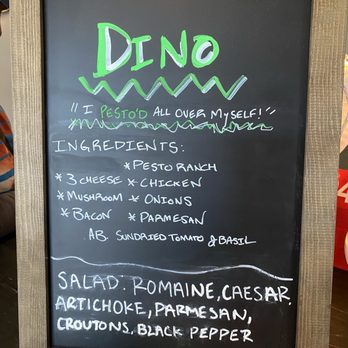 DINO
"I PESTO'D ALL OVER MYSELF!"
INGREDIENTS:
* PESTO RANCH
* 3 CHEESE * CHICKEN
* MUSHROOM * ONIONS
* BACON * PARMESAN
AB. SUNDRIED TOMATO & BASIL
SALAD: ROMAINE, CAESAR,
ARTICHOKE, PARMESAN,
CROUTONS, BLACK PEPPER